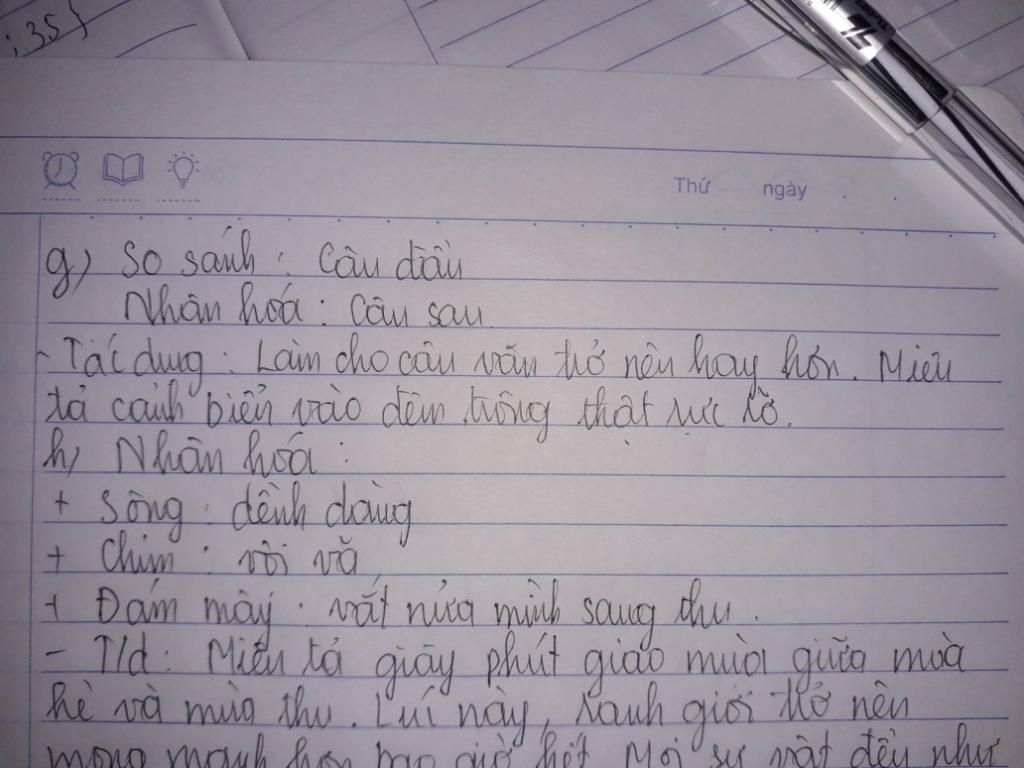 : 35}
Thứ ngày
g) So sánh : Câu đầu
Nhân hoá : Câu sau
- Tác dụng : Làm cho câu văn trở nên hay hơn. Miêu
tả cảnh biển vào đêm trông thật rực rỡ.
h) Nhân hóa :
+ Sông : dềnh dàng
+ Chim : vội vã
+ Đám mây : vắt nửa mình sang thu.
- T/d : Miêu tả giây phút giao mùa giữa mùa
hè và mùa thu. Lúc này, ranh giới trở nên
mỏng manh hơn bao giờ hết. Mọi sự vật đều như